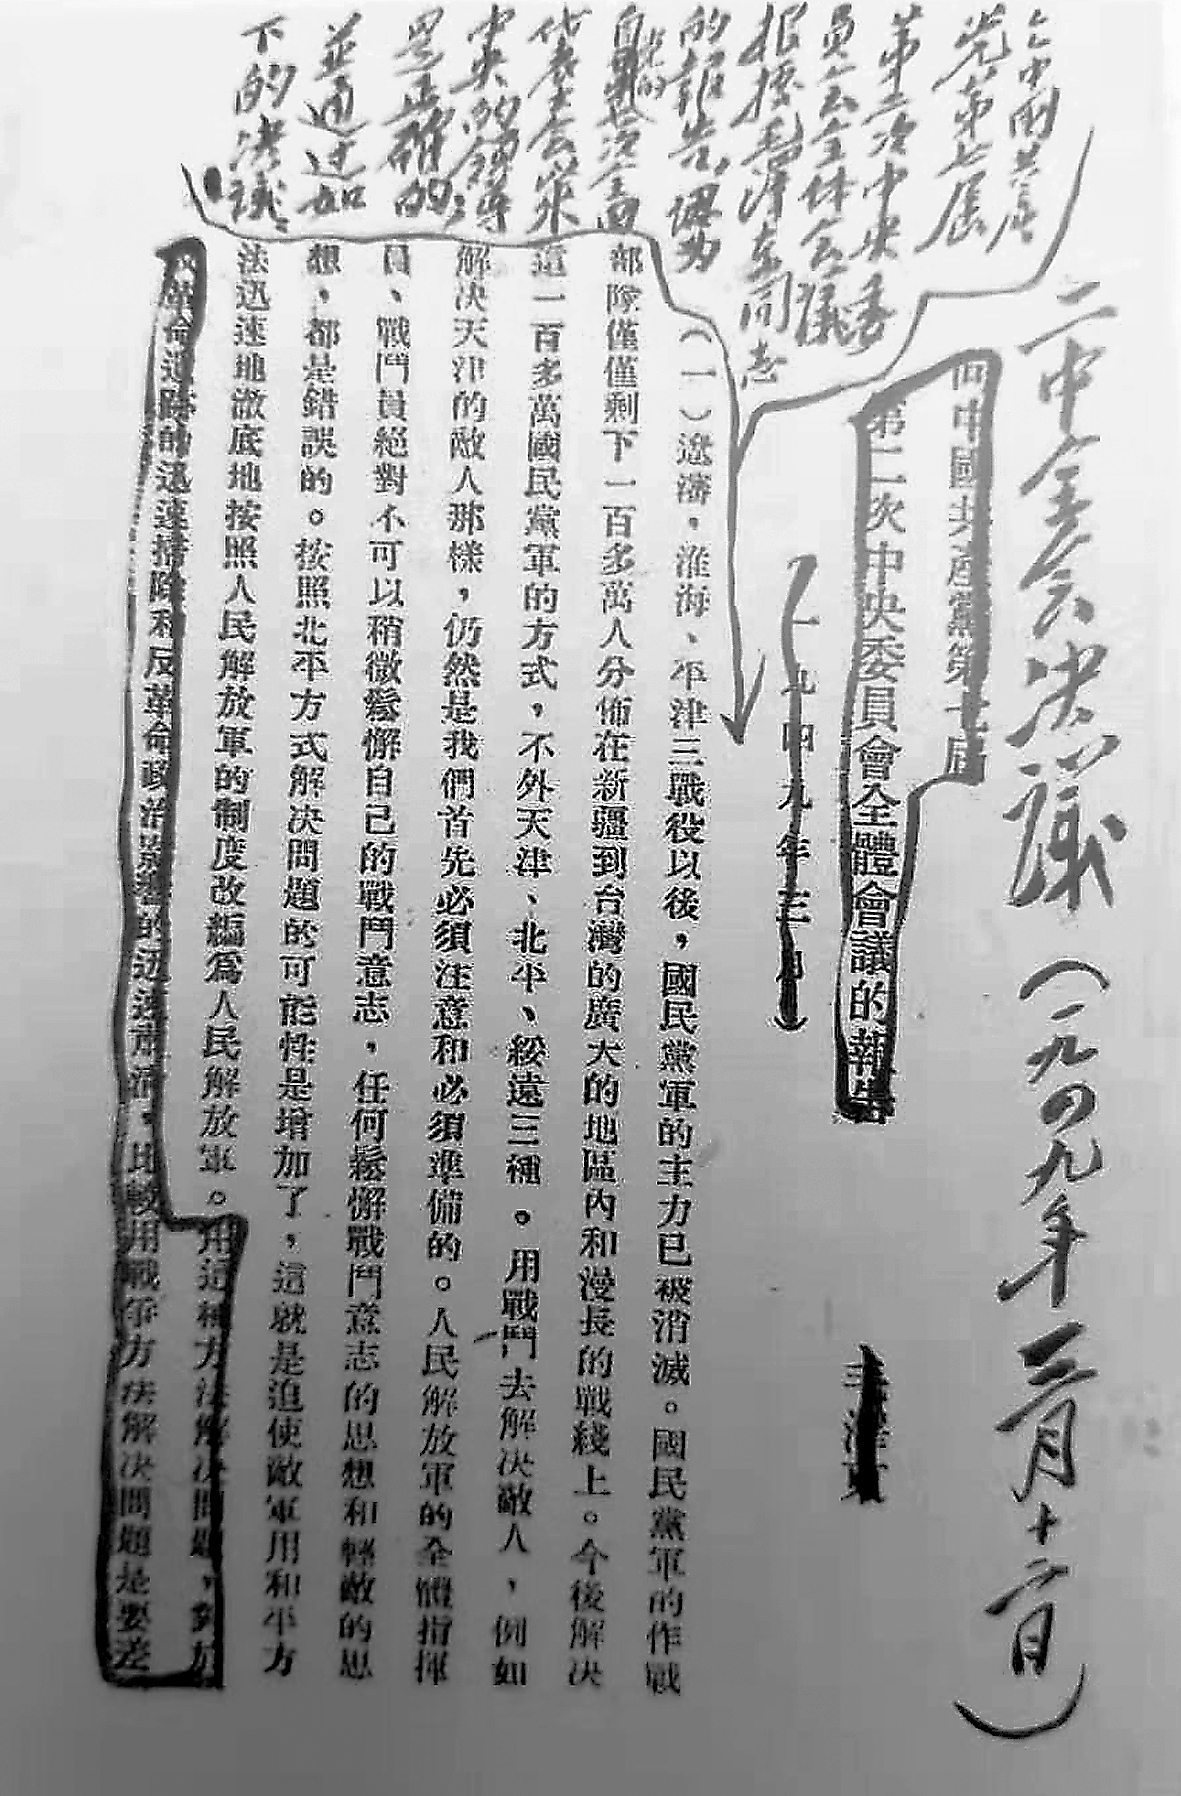 二中全会决議（一九四九年三月十三日）
中國共产
党第七屆
第二次中央委
員会全体会議
根據毛澤東同志
的報告，認为
自党的七次全国
代表大会以来
中央的領導
是正確的；
並通过如
下的决議：
在中國共產黨第七屆
第二次中央委員會全體會議的報告
（一九四九年三月）
毛澤東
（一）遼瀋，淮海、平津三戰役以後，國民黨軍的主力已被消滅。國民黨軍的作戰
部隊僅僅剩下一百多萬人分佈在新疆到台灣的廣大的地區內和漫長的戰綫上。今後解决
這一百多萬國民黨軍的方式，不外天津、北平、綏遠三種。用戰鬥去解决敵人，例如
解决天津的敵人那樣，仍然是我們首先必須注意和必須準備的。人民解放軍的全體指揮
員、戰鬥員絕對不可以稍微鬆懈自己的戰鬥意志，任何鬆懈戰鬥意志的思想和輕敵的思
想，都是錯誤的。按照北平方式解决問題的可能性是增加了，這就是迫使敵軍用和平方
法迅速地澈底地按照人民解放軍的制度改編爲人民解放軍。用這種方法解决問題，對於
反革命遺跡的迅速掃除和反革命政治影響的迅速肅清，比較用戰爭方法解决問題是要差